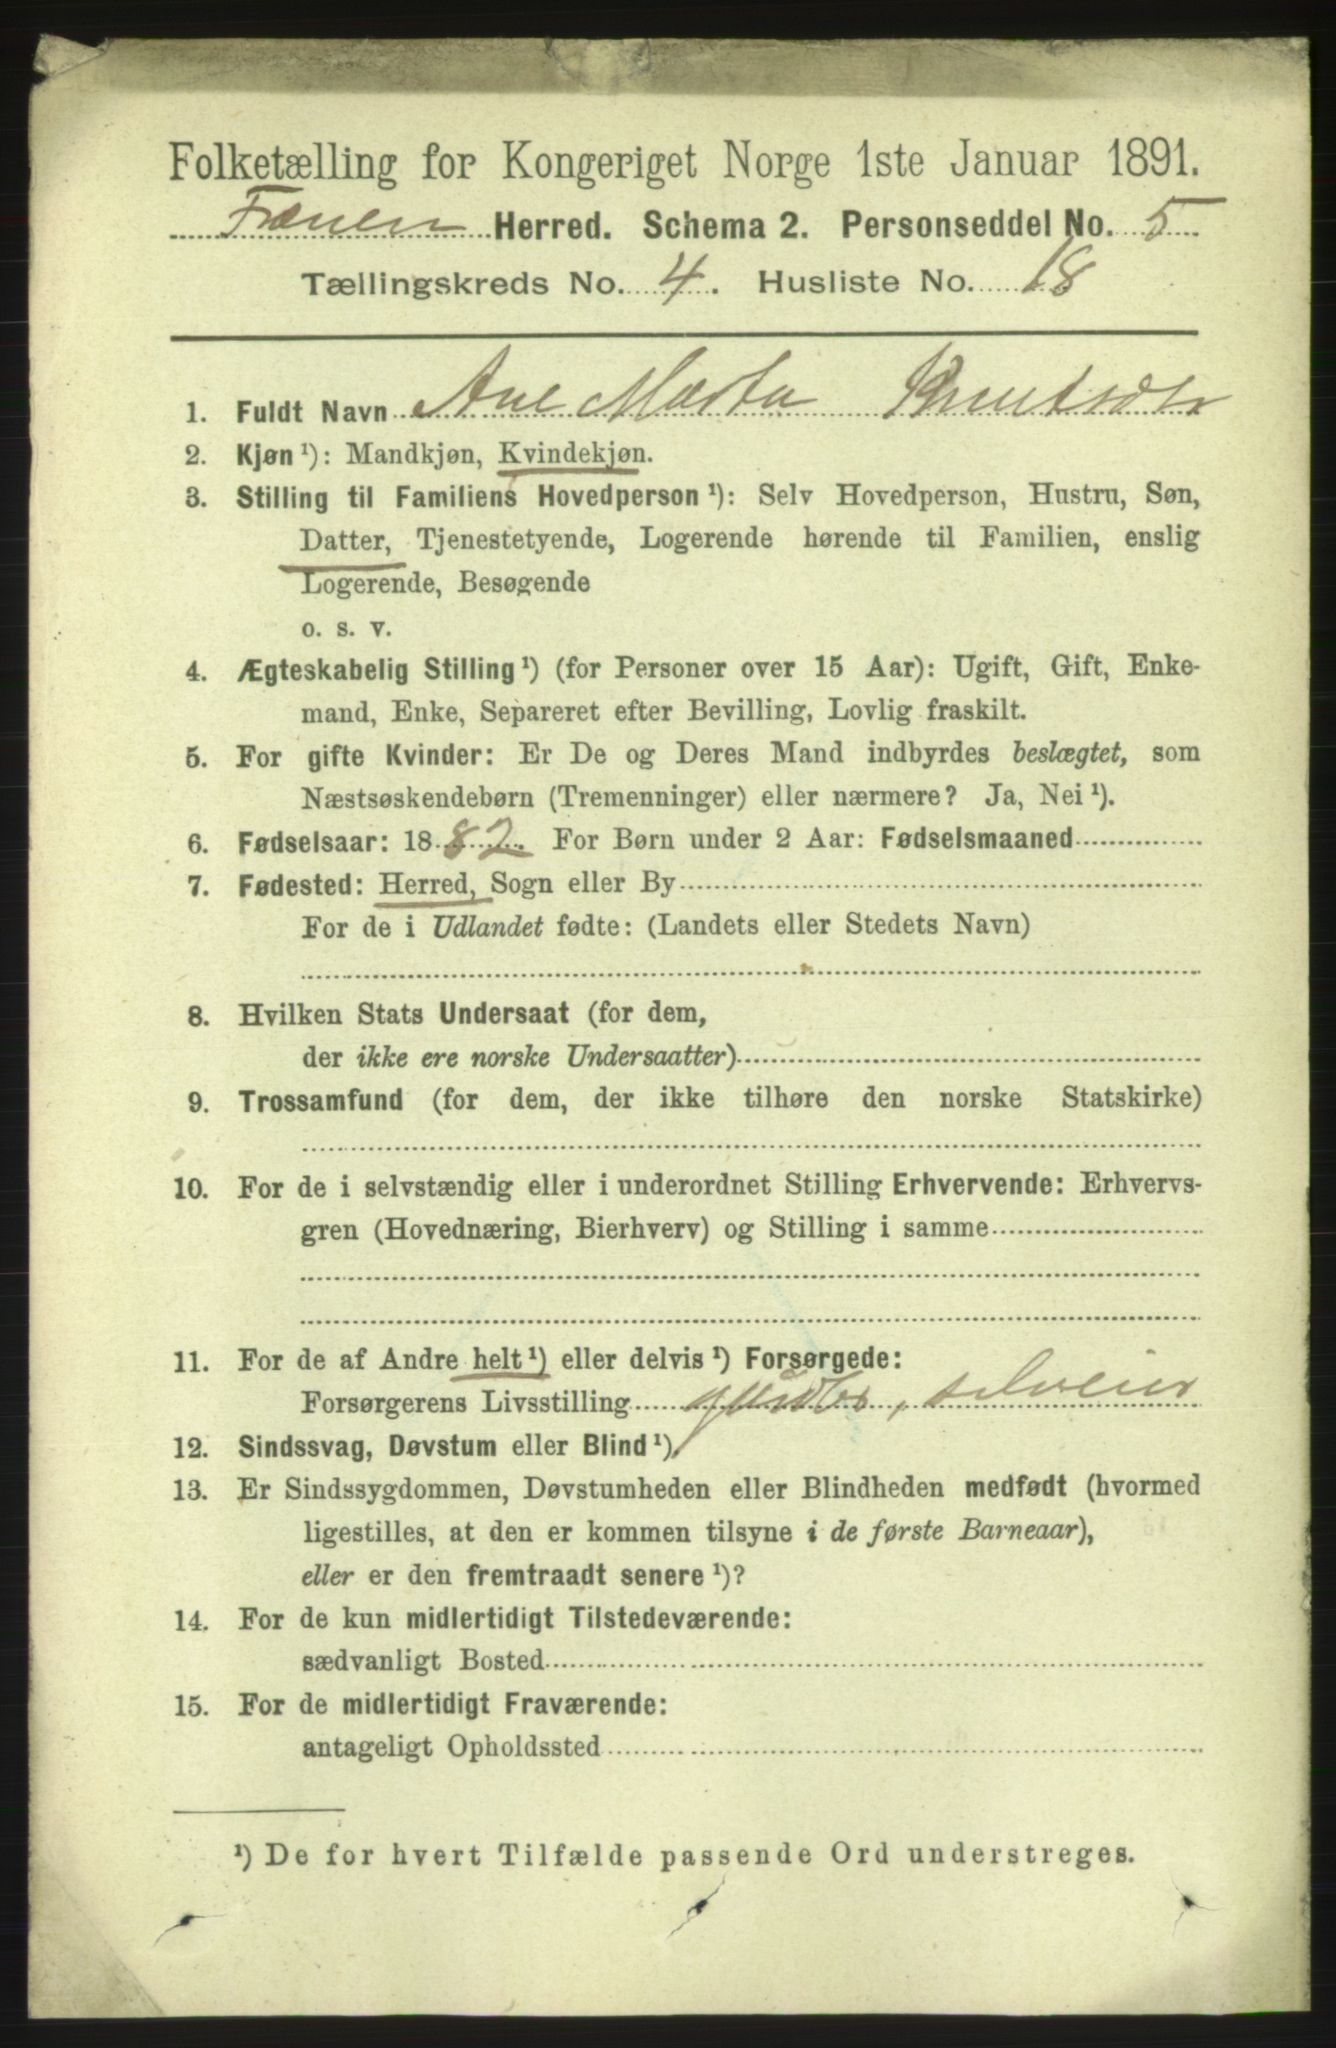 Folketælling for Kongeriget Norge 1ste Januar 1891.
Frænen Herred. Schema 2. Personseddel No. 5
Tællingskreds No. 4. Husliste No. 18
1. Fuldt Navn Ane Marta Knutsdtr
2. Kjøn ¹): Mandkjøn, Kvindekjøn.
3. Stilling til Familiens Hovedperson ¹): Selv Hovedperson, Hustru, Søn,
Datter, Tjenestetyende, Logerende hørende til Familien, enslig
Logerende, Besøgende
o. s. v.
4. Ægteskabelig Stilling ¹) (for Personer over 15 Aar): Ugift, Gift, Enke-
mand, Enke, Separeret efter Bevilling, Lovlig fraskilt.
5. For gifte Kvinder: Er De og Deres Mand indbyrdes beslægtet, som
Næstsøskendebørn (Tremenninger) eller nærmere? Ja, Nei ¹).
6. Fødselsaar: 1882. For Børn under 2 Aar: Fødselsmaaned
7. Fødested: Herred, Sogn eller By
For de i Udlandet fødte: (Landets eller Stedets Navn)
8. Hvilken Stats Undersaat (for dem,
der ikke ere norske Undersaatter)
9. Trossamfund (for dem, der ikke tilhøre den norske Statskirke)
10. For de i selvstændig eller i underordnet Stilling Erhvervende: Erhvervs-
gren (Hovednæring, Bierhverv) og Stilling i samme
11. For de af Andre helt ¹) eller delvis ¹) Forsørgede:
Forsørgerens Livsstilling gaardbr, selveier
12. Sindssvag, Døvstum eller Blind ¹).
13. Er Sindssygdommen, Døvstumheden eller Blindheden medfødt (hvormed
ligestilles, at den er kommen tilsyne i de første Barneaar),
eller er den fremtraadt senere ¹)?
14. For de kun midlertidigt Tilstedeværende:
sædvanligt Bosted
15. For de midlertidigt Fraværende:
antageligt Opholdssted
¹) De for hvert Tilfælde passende Ord understreges.